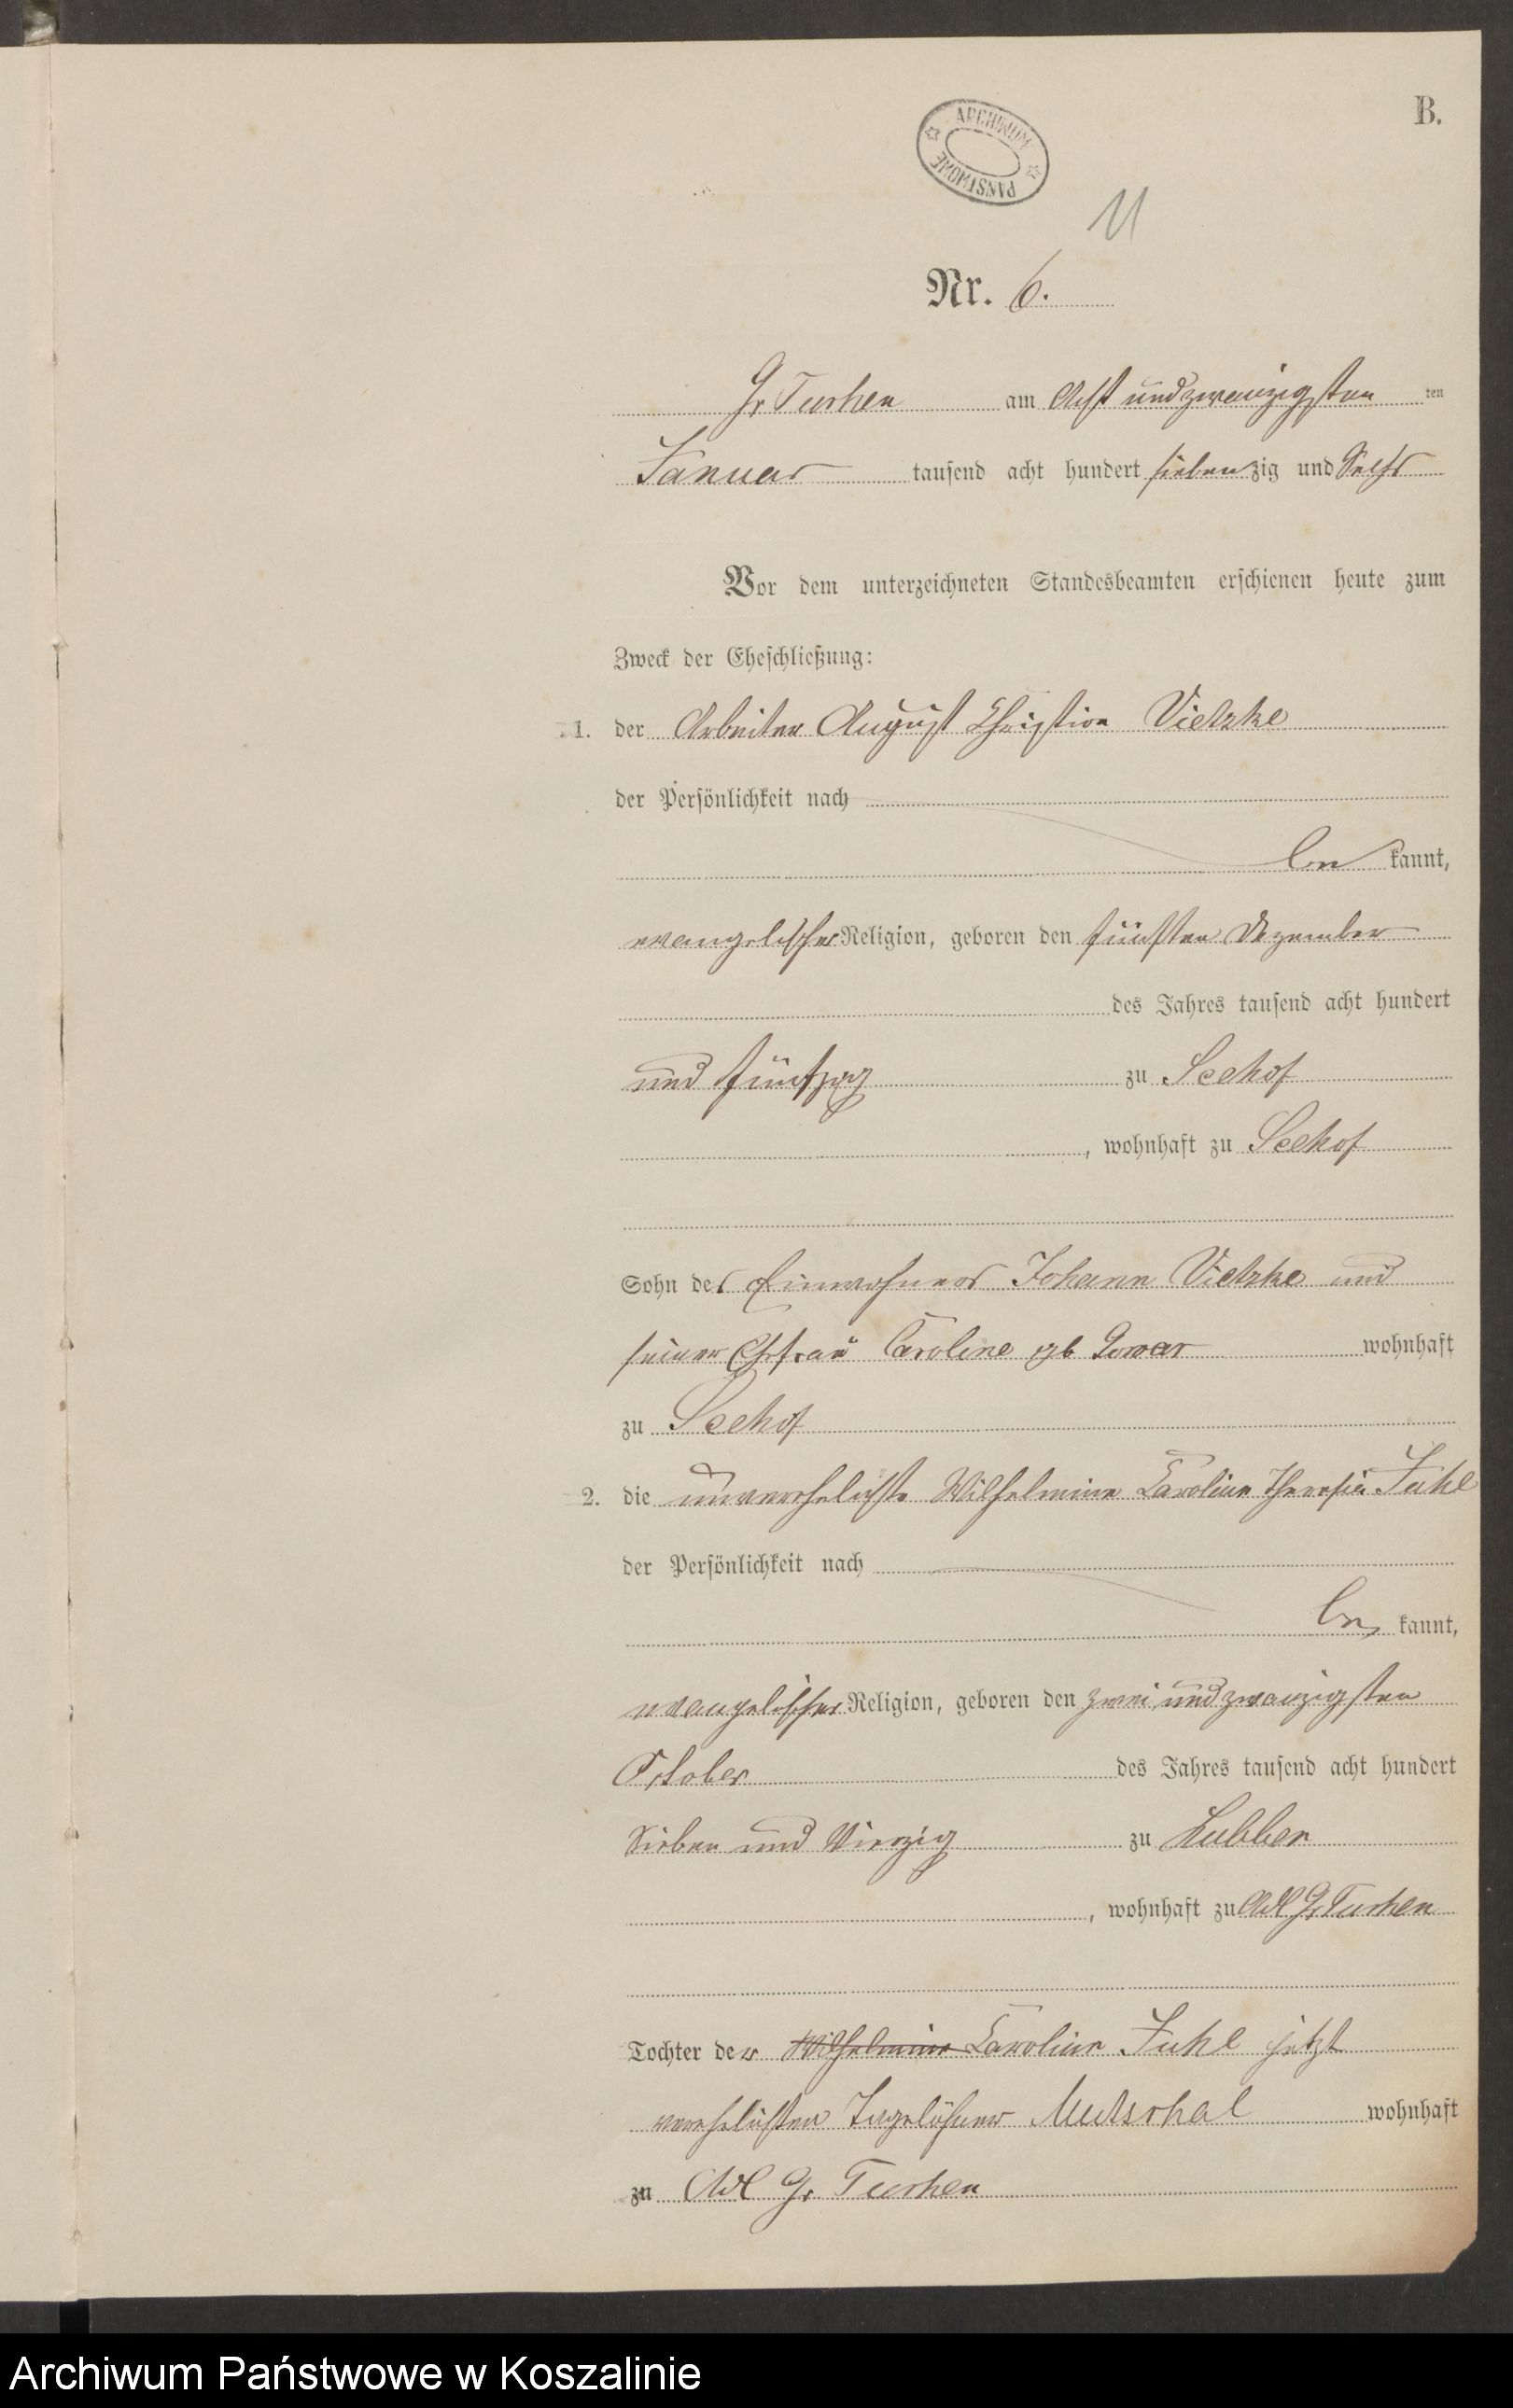 B.
ARCHIWUM PAŃSTWOWE
11
Nr. 6.
Gr Tuchen am Acht und zwanzigsten ten
Januar tausend acht hundert siebenzig und Sechs
Vor dem unterzeichneten Standesbeamten erschienen heute zum
Zweck der Eheschließung:
1. der Arbeiter August Christian Vietzke
der Persönlichkeit nach
be kannt,
evangelischer Religion, geboren den fünften Dezember
des Jahres tausend acht hundert
und fünfzig zu Seehof
, wohnhaft zu Seehof
Sohn des Einwohners Johann Vietzke und
seiner Ehefrau Caroline gb wohnhaft
zu Seehof
2. die unverehelichte Wilhelmine Caroline Theresia Juhl
der Persönlichkeit nach
be kannt,
evangelischer Religion, geboren den zwei und zwanzigsten
October des Jahres tausend acht hundert
Sieben und Vierzig zu Lubben
, wohnhaft zu Adl Gr Tuchen
Tochter der Wilhelmine Caroline Juhl jetzt
verehelichten Tagelöhner wohnhaft
zu Adl Gr Tuchen
Archiwum Państwowe w Koszalinie